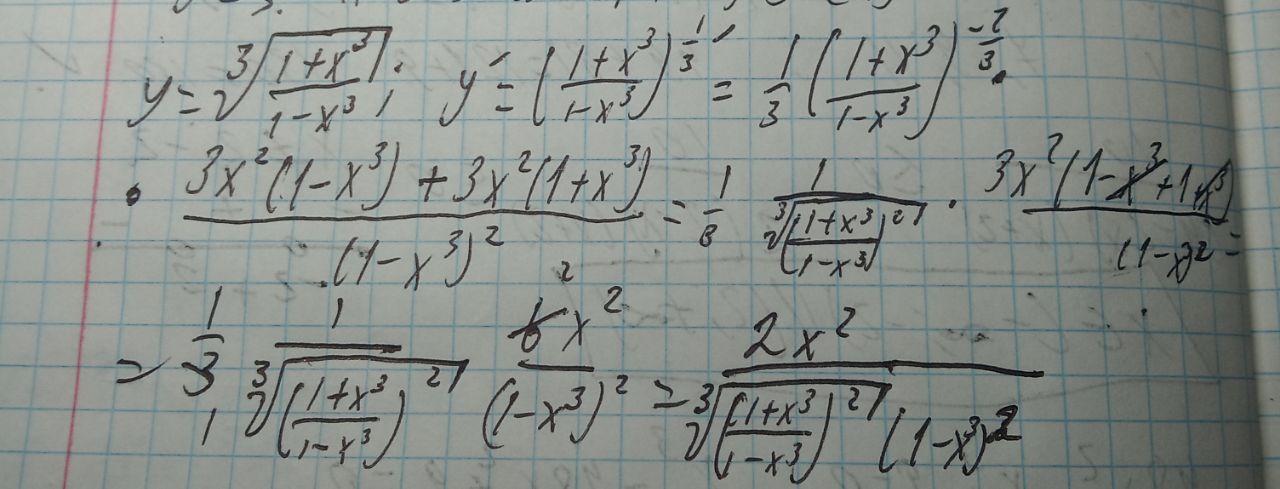 y = ∛((1+x³)/(1-x³)); y' = ((1+x³)/(1-x³))^(1/3)' = 1/3 ((1+x³)/(1-x³))^(-2/3) ·
· (3x²(1-x³)+3x²(1+x³))/(1-x³)² = 1/3 1/∛(((1+x³)/(1-x³))²) · 3x²(1-x³+1+x³)/(1-x)² =
= 1/3 1/∛(((1+x³)/(1-x³))²) 6x²/(1-x³)² = 2x²/(∛(((1+x³)/(1-x³))²) (1-x³)²)